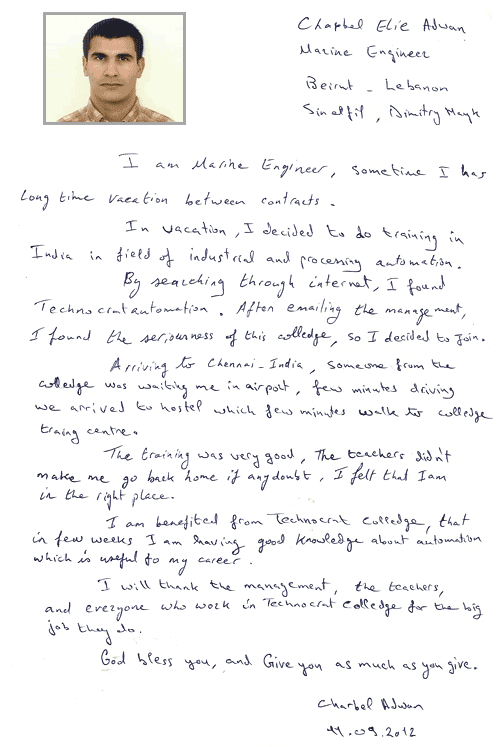 Charbel Elie Adwan
Marine Engineer
Beirut - Lebanon
Sinelfil, Dimitry Hayk
I am Marine Engineer, sometime I has
long time vacation between contracts.
In vacation, I decided to do training in
India in field of industrial and processing automation.
By searching through internet, I found
Technocrat automation. After emailing the management,
I found the seriourness of this colledge, so I decided to join.
Arriving to Chennai-India, someone from the
colledge was waiting me in airport, few minutes driving
we arrived to hostel which few minutes walk to colledge
traing centre.
The training was very good, The teachers didn't
make me go back home if any doubt, I felt that I am
in the right place.
I am benefited from Technocrat colledge, that
in few weeks I am having good knowledge about automation
which is useful to my career.
I will thank the management, the teachers,
and everyone who work in Technocrat colledge for the big
job they do.
God bless you, and Give you as much as you give.
Charbel Adwan
11.09.2012